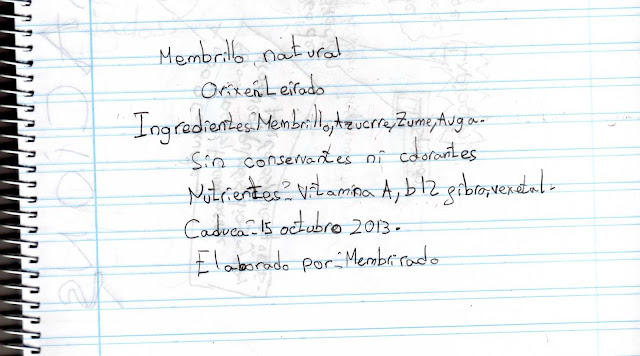 Membrillo natural
Orixen: Leirado
Ingredientes: Membrillo, Azucrre, Zume, Auga.
Sin conservantes ni colorantes
Nutrientes: Vitamina A, b12 gibra, vexetal.
Caduca: 15 octubro 2013.
Elaborado por: Membrirado